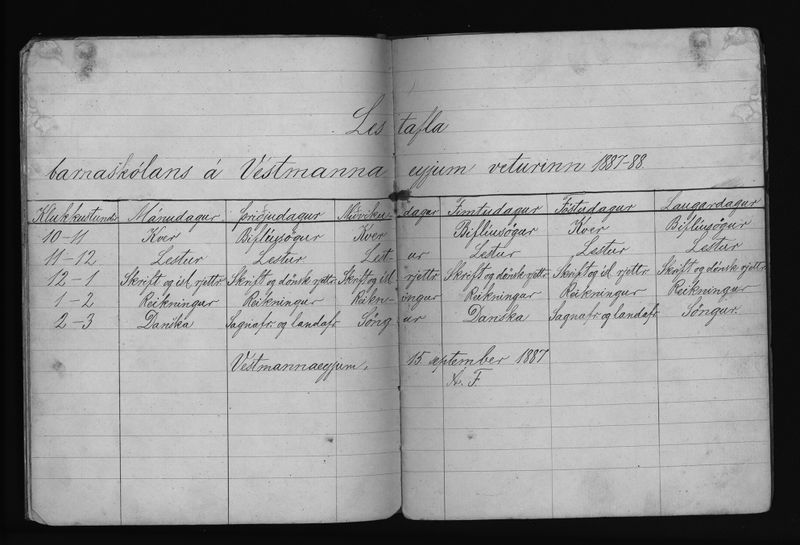 Lestafla
barnaskólans á Vestmannaeyjum veturinn 1887-88
Klukkustundir Mánudagur Þriðjudagur Miðvikudagur Fimtudagur Föstudagur Laugardagur
10-11 Kver Biflíusögur Kver Biflíusögur Kver Biflíusögur
11-12 Lestur Lestur Lestur Lestur Lestur Lestur
12-1 Skrift og ísl. rjettr. Skrift og dönsk rjettr. Skrift og ísl rjettr Skrift og dönsk rjettr. Skrift og ísl rjettr Skrift og dönsk rjettr.
1-2 Reikningur Reikningur Reikningur Reikningur Reikningur Reikningur
2-3 Danska Sagnafr. og landafr Söngur Danska Sagnafr. og landafr Söngur.
Vestmannaeyjum, 15 september 1887